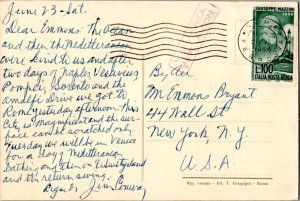 June 23 - Sat.
Dear Emmons: The ocean
and then the Mediterranean
were kind to us and after
two days of Naples Vesuvius
Pompeii, Sorrento and the
Amalfi Drive we got to
Rome yesterday afternoon. This
City is magnificent and the sur-
face can be scratched only
Tuesday we will be in Venice
for a day's Mediterranean
bathing and then on
and the return swing.
Jim Conway
By Air
Mr Emmons Bryant
44 Wall St
New York, N.Y.
U.S.A.
GIUSEPPE MAZZINI
L.100
ITALIA POSTA AEREA
Rip. vietata - Ed. - Roma